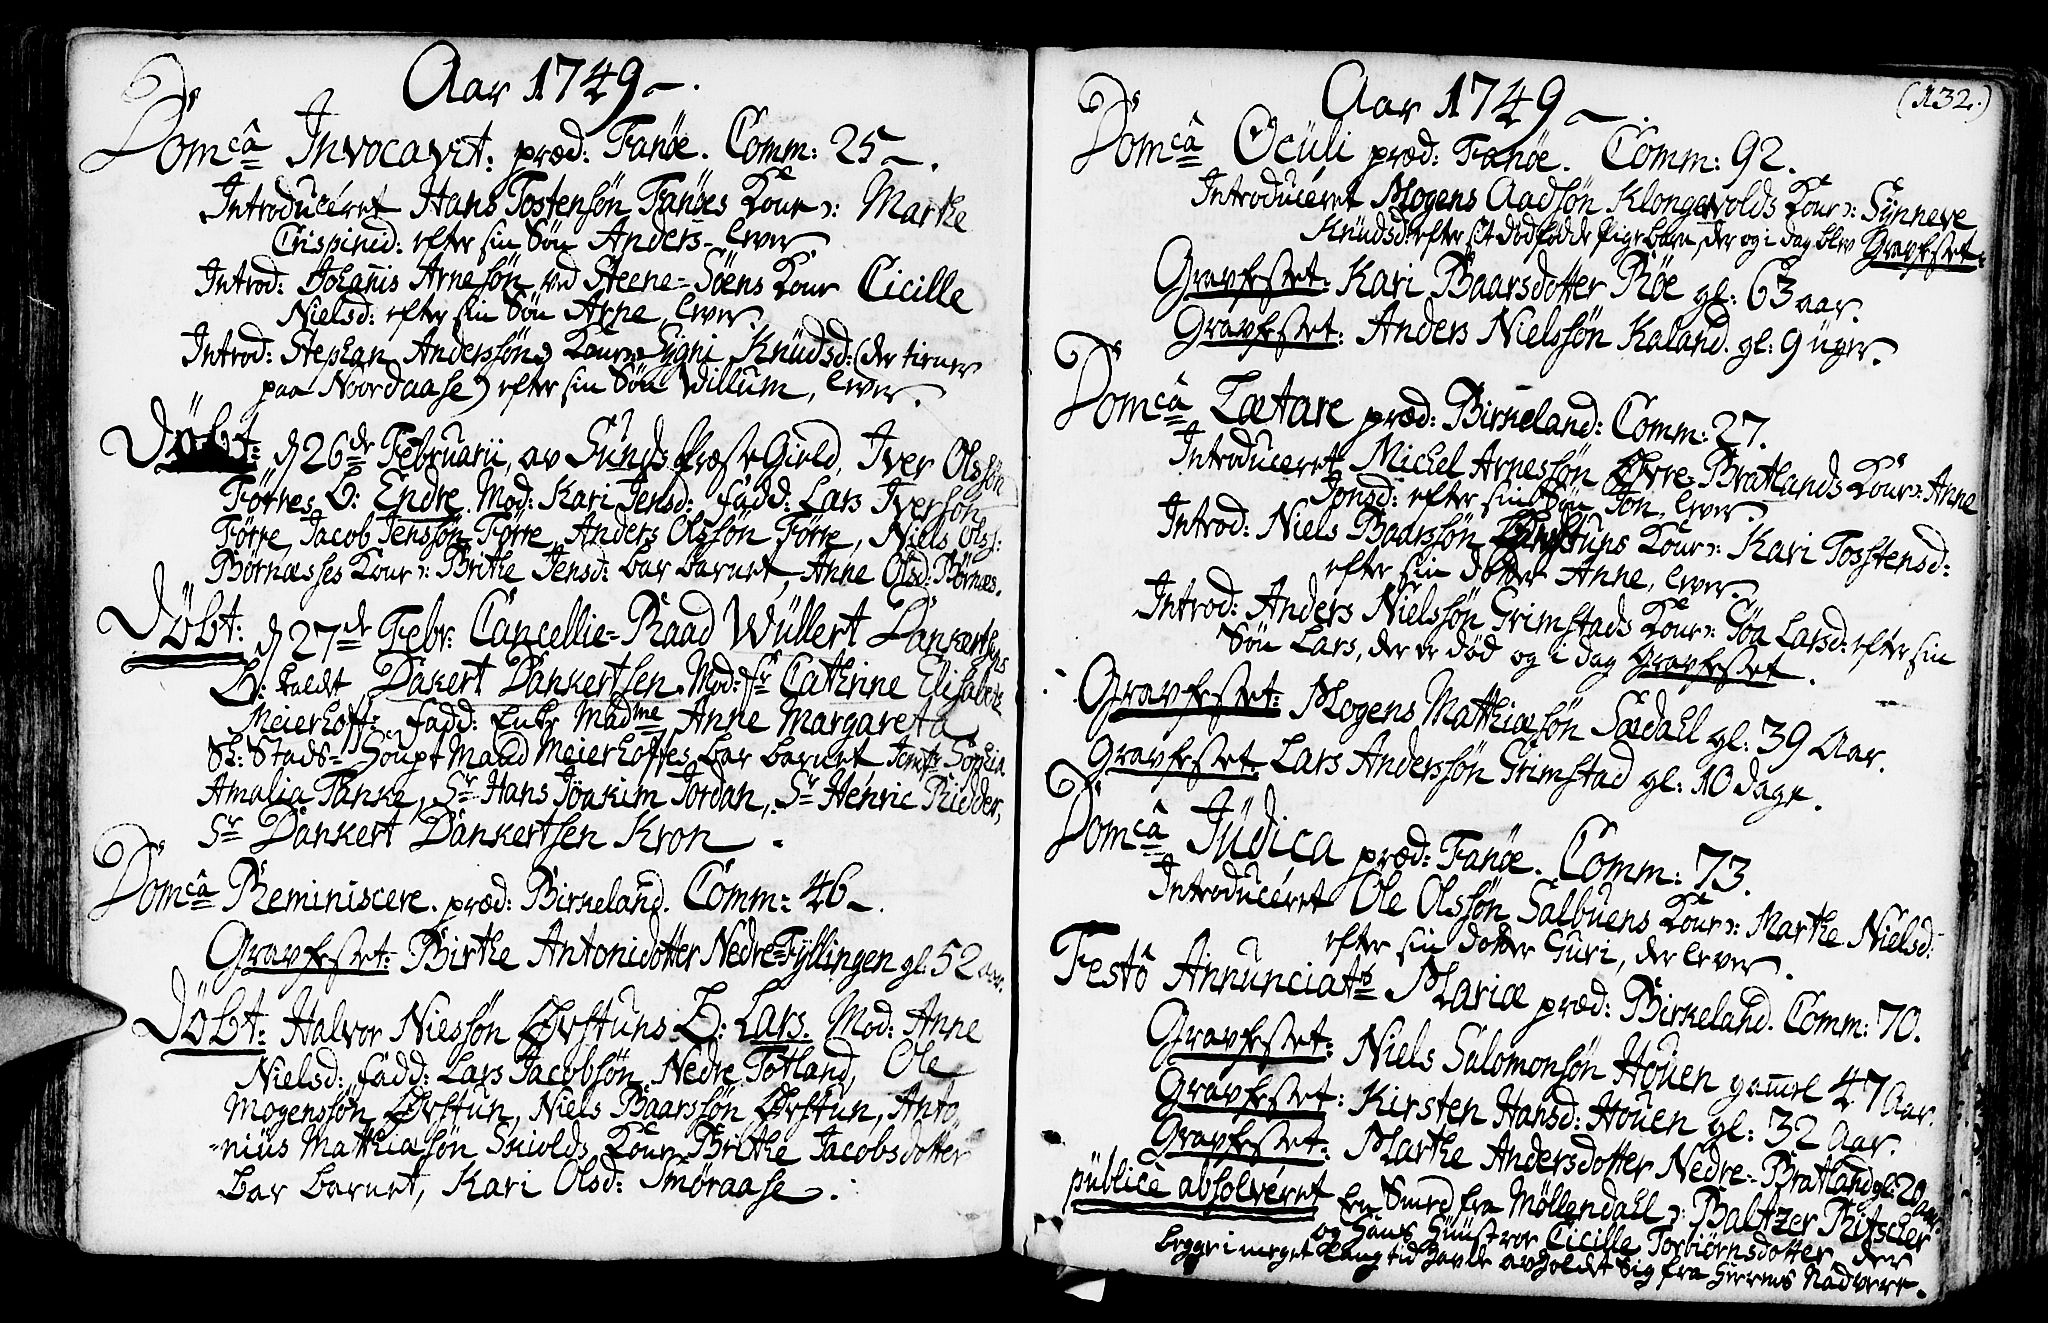 Aar 1749 -.
Domcâ Invocavit. præd: Fanøe. Comm: 25 -.
Introducéret Hans Tostensøn Fanøes Kone ɔ: Marthe
Crispinid: efter sin Søn Anders - lever
Introd: Johañis Arnesøn ved Steene-Søens Kone Cicille
Nielsd: efter sin Søn Arne, lever.
Introd: Stephan Anderssøns Kone Sygni Knüdsd: (der tiener
paa Noordaase) efter sin Søn Willum, lever.
Døbt: d 26de Februarii, av Sunds Præste Gield, Iver Olssøn
Førres B: Endre. Mod: Kari Jensd: fadd: Lars Iversøn
Førre, Jacob Jenssøn Førre, Anders Olssøn Førre, Niels Ols:
Børnæsses Kone ɔ: Brithe Jensd: bar barnet, Anne Olsd: Børnæs.
Døbt: d 27de Febr: Cancellie-Raad Wüllert Dankertsens
B: kaldt Dakert Dankertsen. Mod: fr Cathrine Elisabeth
Meierhoff, fadd: Enke Madme Anne Margareta
Sl: Stads-Houpt Mand Meierhoffes bar barnet Jomfr Sophia
Amalia Tanke, Sr Hans Joakim Jordan, Sr Henric Ridder,
Sr Dankert Dankertsen Kron.
Domcâ Reminiscere. præd: Birkeland. Comm: 46 -.
Gravfestet: Birthe Antonidotter Nedre-Fyllingen gl: 52 aar.
Døbt: Halvor Nielssøn Ørstuns B: Lars. Mod: Anne
Nielsd: fadd: Lars Jacobsøn Nedre Totland, Ole
Mogenssøn Ørstun, Niels Baarssøn Ørstun, Anto-
-niüs Matthiasøn Skiolds Kone Brithe Jacobsdotter
bar barnet, Kari Olsd: Smøraase.
(132.)
Aar 1749 -.
Domcâ Ocüli præd: Fanøe. Comm: 92.
Introducéret Mogens Aadsøn Klongevolds Kone ɔ: Synneve
Knüdsd: efter sit dødfødde Pigebarn, der og i dag blev Gravfestet.
Gravfestet: Kari Baarsdotter Røe gl: 63 aar.
Gravfestet: Anders Nielssøn Kaland. gl: 9 uger.
Domcâ Lætare præd: Birkeland: Comm: 27.
Introduceret Michel Arnessøn Øvre-Bratlands Kone ɔ: Anne
Jonsd: efter sin Søn Jon, lever.
Introd: Niels Baarssøn Ørstuns Kone ɔ: Kari Tosstensd:
efter sin dotter Anne, lever.
Introd: Anders Nielssøn Grimstads Kone ɔ: Gøa Larsd: efter sin
Søn Lars, der er død og i dag Gravfestet.
Gravfestet: Mogens Matthiæsøn Sædall gl: 39 Aar.
Gravfestet: Lars Anderssøn Grimstad gl: 10 dage.
Domcâ Jüdica præd: Fanøe. Comm: 73.
Introducéret Ole Olssøn Salbuens Kone ɔ: Marthe Nielsd:
efter sin dotter Guri, der lever.
Festô Annunciats Mariæ præd: Birkeland. Comm: 70.
Gravfestet: Niels Salomonsøn Houen gam̄el 47 Aar.
Gravfestet: Kirsten Hansd: Houen gl: 32 aar.
Gravfestet: Marthe Andersdotter Nedre-Bratland gl: 20 aar.
publicè absolvéret En Smed fra Møllendahl ɔ: Baltzer Ritscher
og Hans Hüustroe Cicille Torbiørnsdotter der
begge i meget lang tid havde avholdet Sig fra Herrens Nadvere.